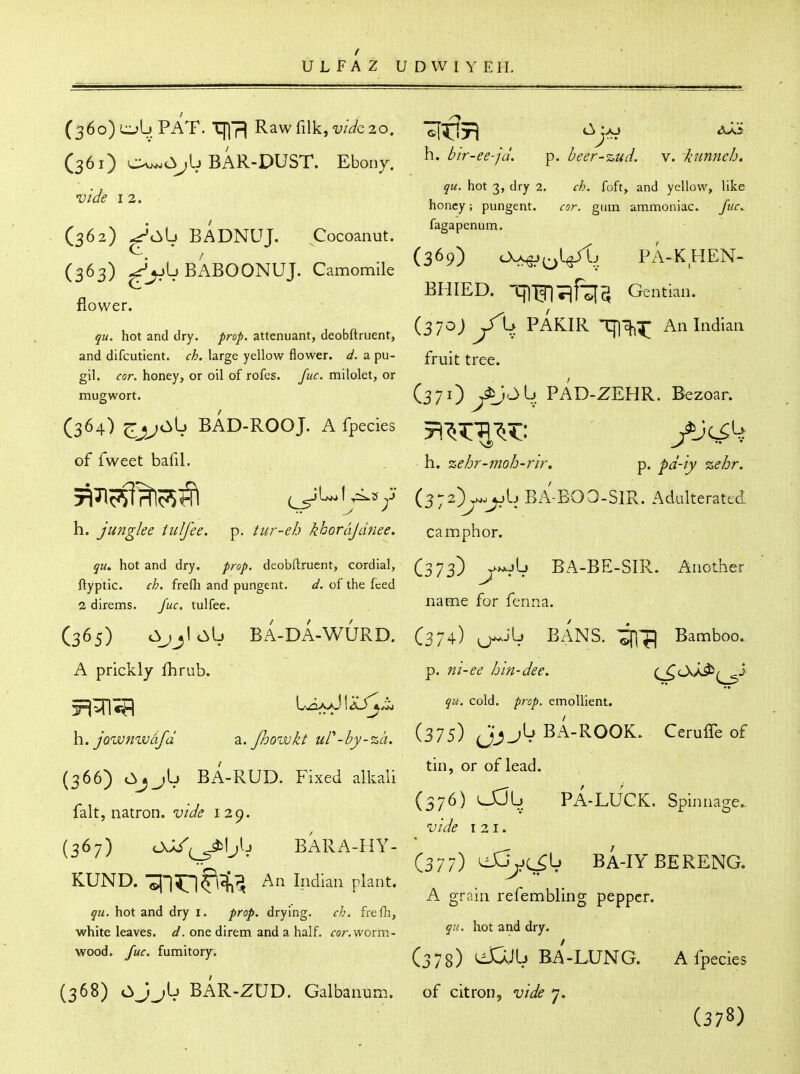 ULFAZ UDWIYEH.
(360) پات PÁT. पात Raw ſilk, vide 20.
(361) باردست BÁR-DUST. Ebony.
vide 12.
(362) بادنج BÁDNUJ. Cocoanut.
(363) بابونج BÁBOONUJ. Camomile
flower.
qu. hot and dry. prop. attenuant, deobſtruent,
and diſcutient. ch. large yellow flower. d. a pu-
gil. cor. honey, or oil of roſes. ſuc. milolet, or
mugwort.
(364) بادروج BÁD-ROOJ. A ſpecies
of ſweet baſil.
h. junglee tulſee. p. tur-eh khoráſánee.
qu. hot and dry. prop. deobſtruent, cordial,
ſtyptic. ch. freſh and pungent. d. of the ſeed
2 direms. ſuc. tulſee.
(365) باداورد BÁ-DÁ-WÚRD.
A prickly ſhrub.
h. jownwáſá a. ſhowkt ul'-by-zá.
(366) بارود BÁ-RUD. Fixed alkali
ſalt, natron. vide 129.
(367) باراهيكند BÁRA-HY-
KUND. An Indian plant.
qu. hot and dry 1. prop. drying. ch. freſh,
white leaves. d. one direm and a half. cor. worm-
wood. ſuc. fumitory.
(368) بارزد BÁR-ZUD. Galbanum.
h. bir-ee-já. p. beer-zud. v. kunneh.
qu. hot 3, dry 2. ch. ſoft, and yellow, like
honey; pungent. cor. gum ammoniac. ſuc.
ſagapenum.
(369) PÁ-KHEN-
BHIED. Gentian.
(370) پاکر PÁKIR पाकर An Indian
fruit tree.
(371) پادزهر PÁD-ZEHR. Bezoar.
پای زهر
h. zehr-moh-rir. p. pá-iy zehr.
(372) BÁ-BOO-SIR. Adulterated
camphor.
(373) BÁ-BE-SIR. Another
name for ſenna.
(374) بانس BÁNS. बांस Bamboo.
p. ni-ee hin-dee. نی هندی
qu. cold. prop. emollient.
(375) باروق BÁ-ROOK. Ceruſſe of
tin, or of lead.
(376) پالک PÁ-LUCK. Spinnage.
vide 121.
(377) بای برنگ BÁ-IY BERENG.
A grain reſembling pepper.
qu. hot and dry.
(378) بالنگ BÁ-LUNG. A ſpecies
of citron, vide 7.
(378)